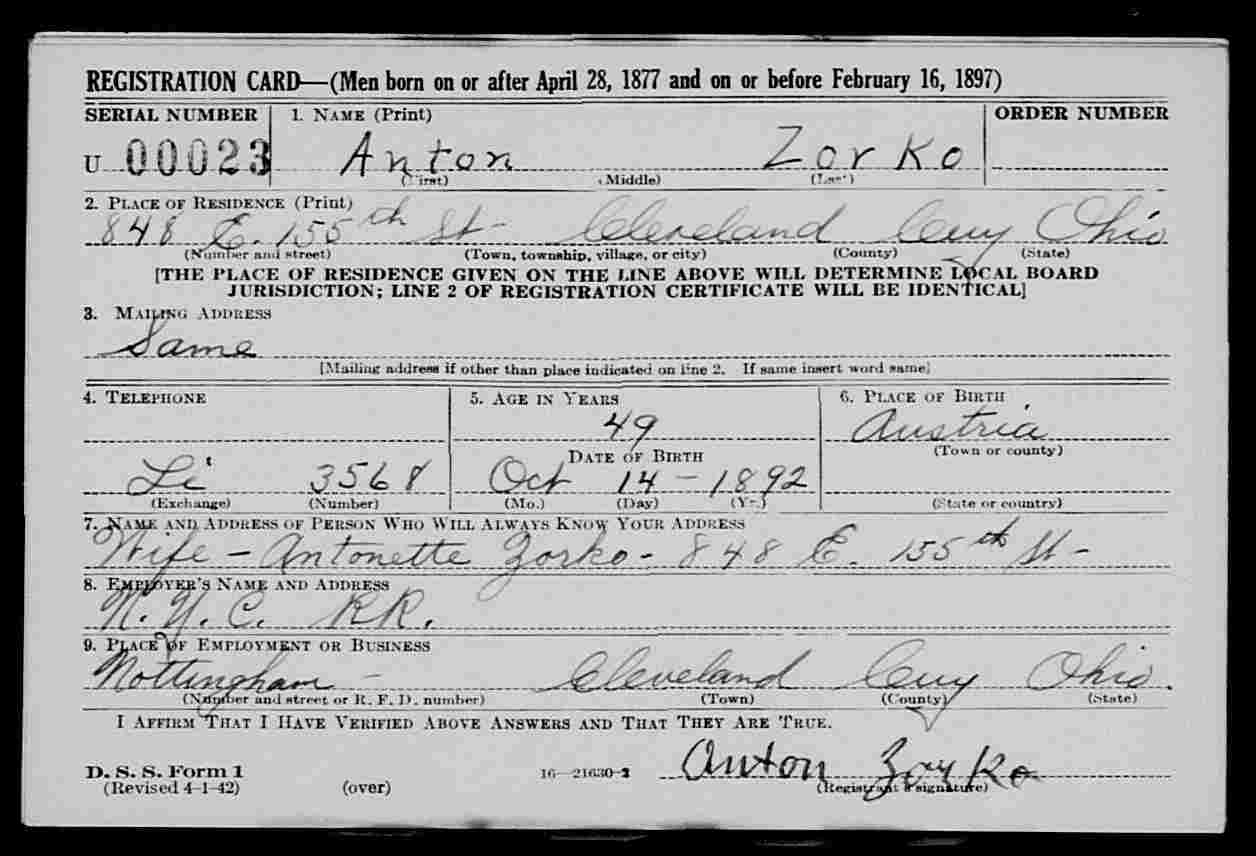 REGISTRATION CARD—(Men born on or after April 28, 1877 and on or before February 16, 1897)
SERIAL NUMBER 1. NAME (Print) ORDER NUMBER
U 00023 Anton Zorko
(First) (Middle) (Last)
2. PLACE OF RESIDENCE (Print)
848 E. 155th St- Cleveland Cuy Ohio
(Number and street) (Town, township, village, or city) (County) (State)
[THE PLACE OF RESIDENCE GIVEN ON THE LINE ABOVE WILL DETERMINE LOCAL BOARD
JURISDICTION; LINE 2 OF REGISTRATION CERTIFICATE WILL BE IDENTICAL]
3. MAILING ADDRESS
Same
[Mailing address if other than place indicated on line 2. If same insert word same]
4. TELEPHONE 5. AGE IN YEARS 6. PLACE OF BIRTH
49 Austria
DATE OF BIRTH (Town or county)
Li 3568 Oct 14-1892
(Exchange) (Number) (Mo.) (Day) (Yr.) (State or country)
7. NAME AND ADDRESS OF PERSON WHO WILL ALWAYS KNOW YOUR ADDRESS
Wife - Antonette Zorko - 848 E. 155th St -
8. EMPLOYER'S NAME AND ADDRESS
N.Y.C. RR.
9. PLACE OF EMPLOYMENT OR BUSINESS
Nottingham - Cleveland Cuy Ohio.
(Number and street or R. F. D. number) (Town) (County) (State)
I AFFIRM THAT I HAVE VERIFIED ABOVE ANSWERS AND THAT THEY ARE TRUE.
D. S. S. Form 1 16—21630-2 Anton Zorko
(Revised 4-1-42) (over) (Registrant's signature)